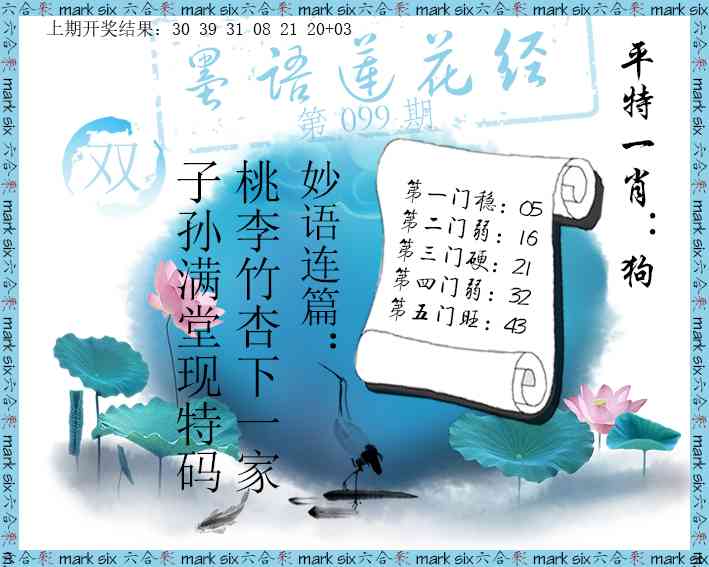 上期开奖结果：30 39 31 08 21 20+03
墨语莲花经
第 099 期
双
平特一肖：狗
妙语连篇：
桃李竹杏下一家
子孙满堂现特码
第一门稳：05
第二门弱：16
第三门硬：21
第四门弱：32
第五门旺：43
mark six六合彩 mark six六合彩 mark six六合彩 mark six六合彩 mark six六合彩 mark six六合彩